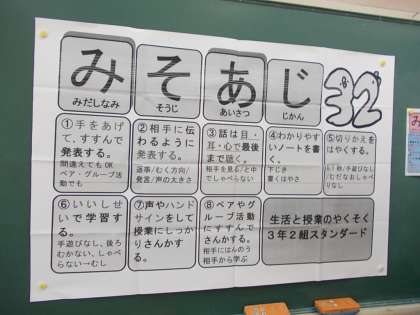 みそあじ 32
みだしなみ そうじ あいさつ じかん
①手をあげ
て、すすんで
発表する。
間違えてもOK
ペア・グループ活
動でも
②相手に伝
わるように
発表する。
返事/むく方向/
発言/声の大きさ
③話は目・
耳・心で最後
まで聴く。
相手を見る/と中
でしゃべらない
④わかりやす
いノートを書
く。
下じき
書くはやさ
⑤切りかえを
はやくする。
⑥いいしせ
いで学習する。
手遊びなし、後ろ
むかない、しゃべ
らない→むし
⑦声やハンド
サインをして
授業にしっか
りさんかす
る。
⑧ペアやグ
ループ活動
にすすんで
さんかする。
相手にはんのう
相手から学ぶ
生活と授業のやくそく
3年2組スタンダード
み